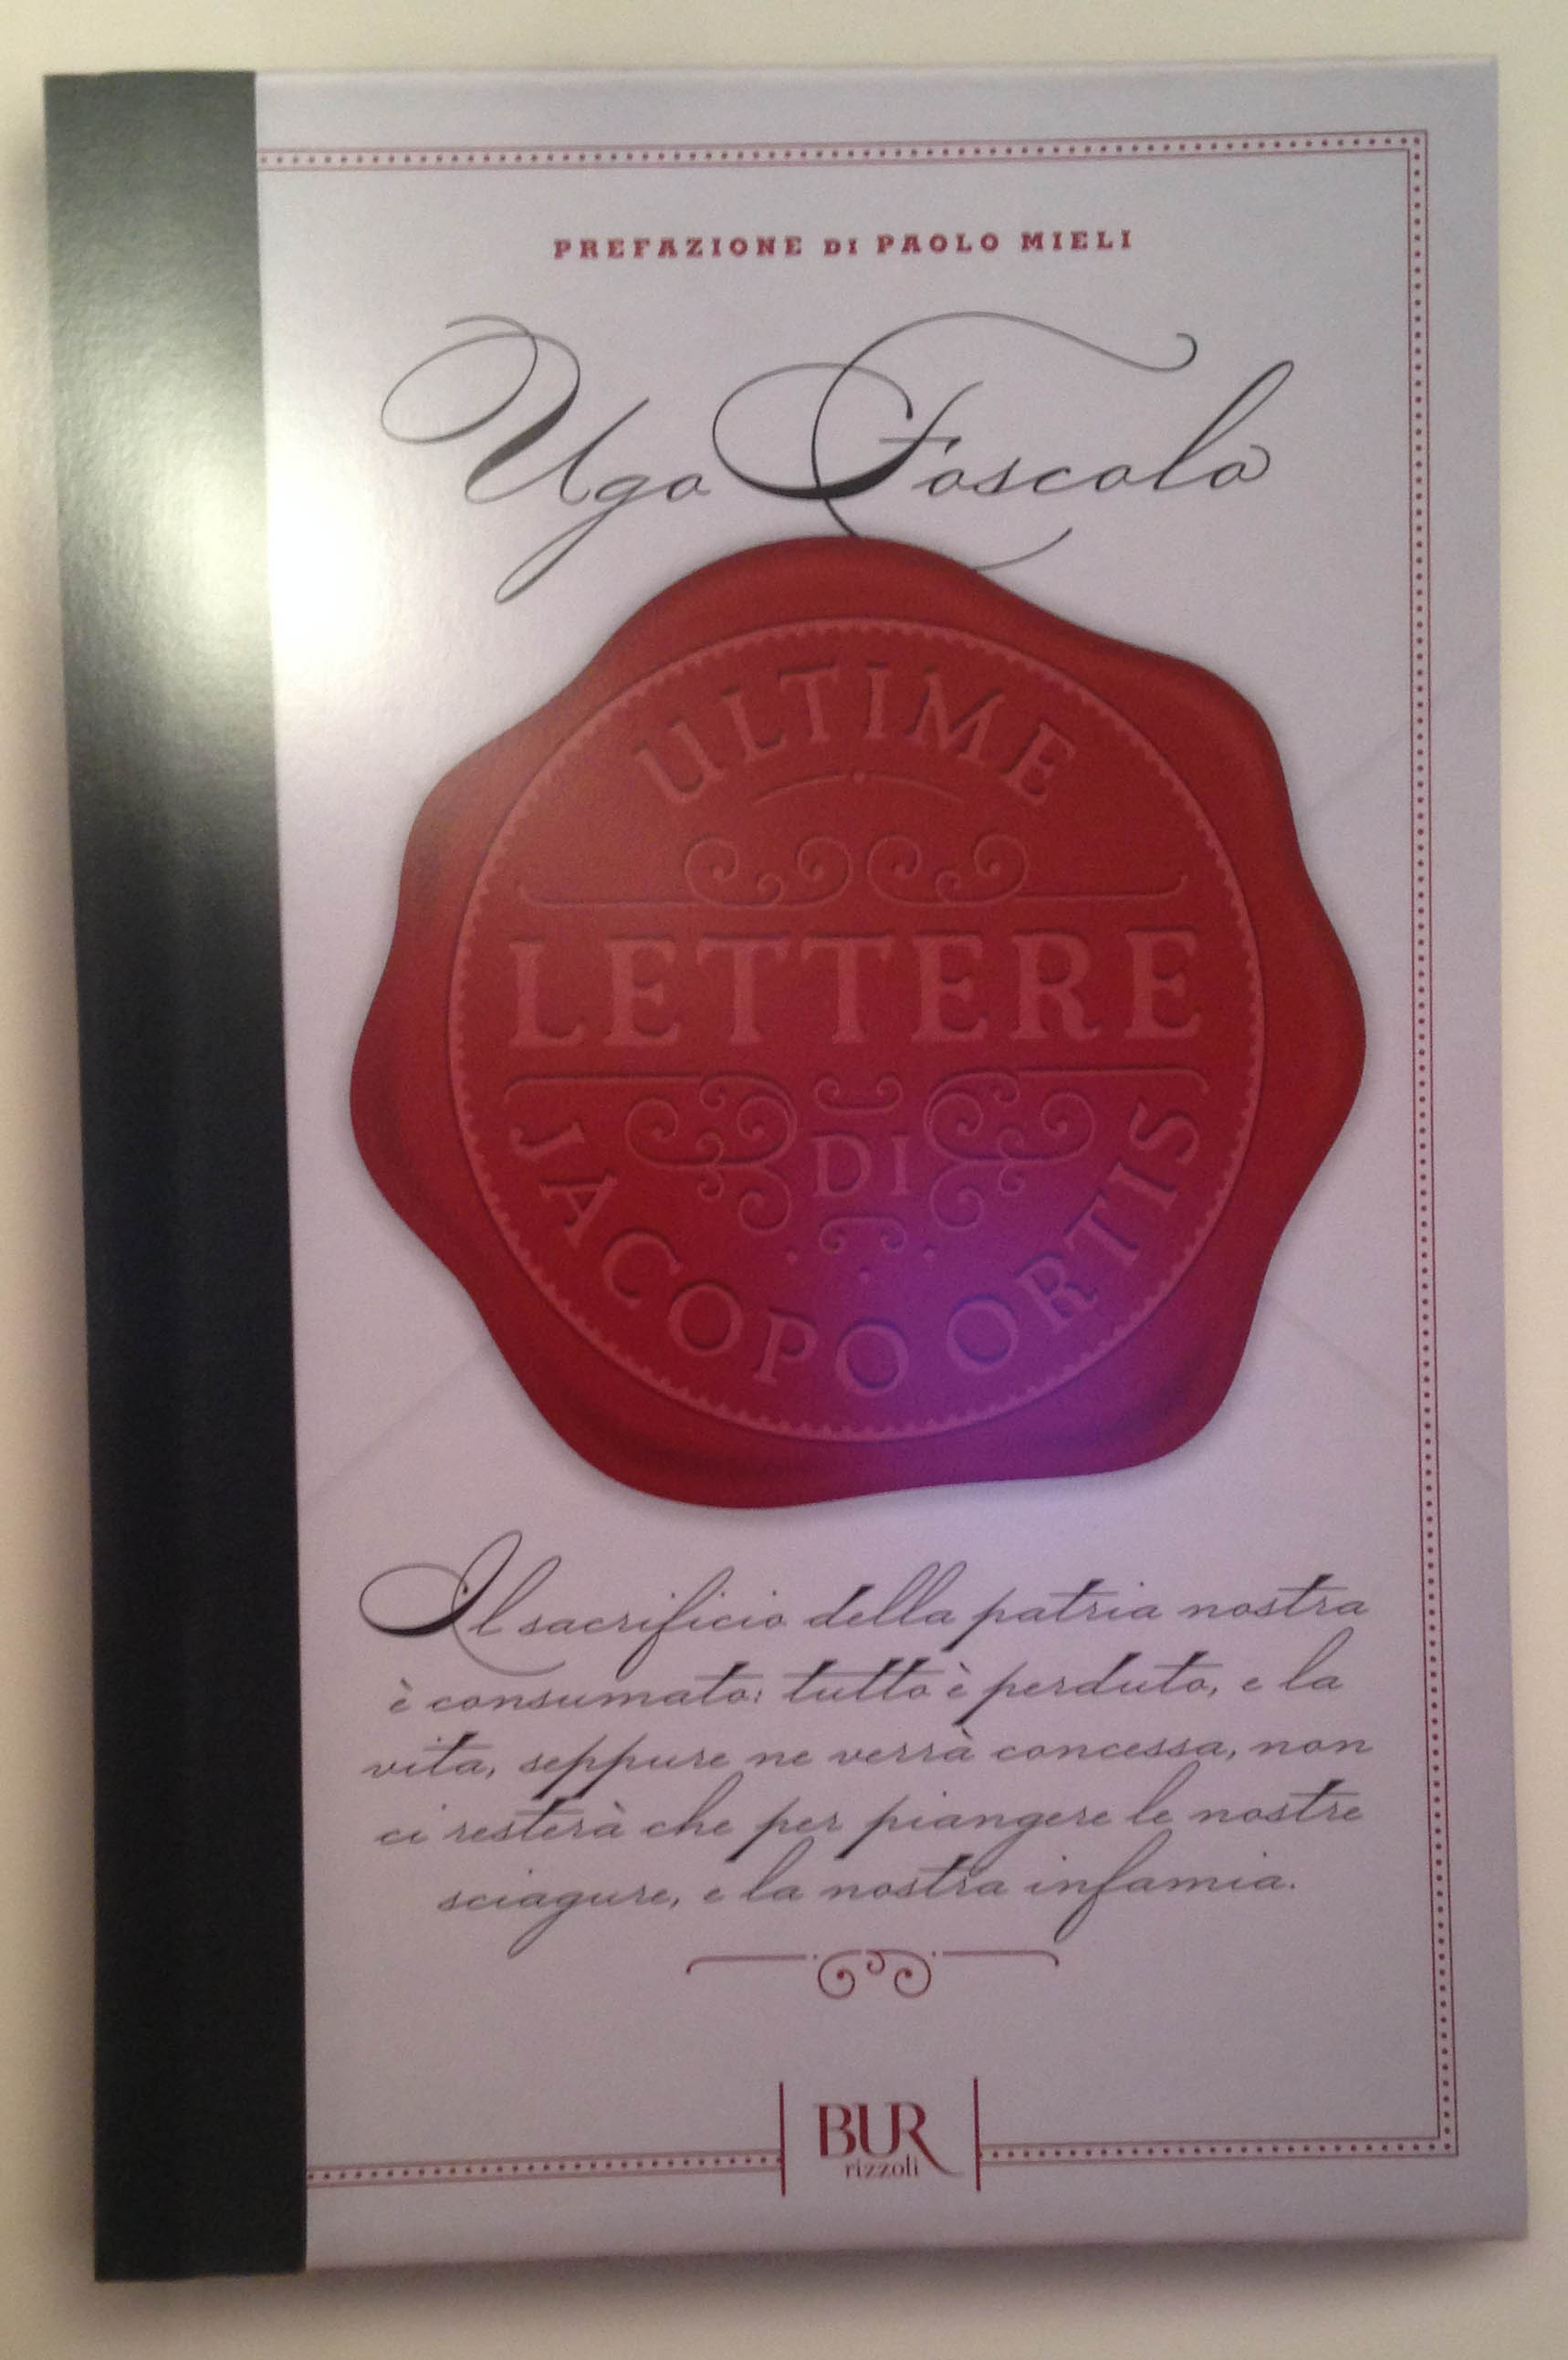 PREFAZIONE DI PAOLO MIELI
Ugo Foscolo
ULTIME
LETTERE
DI
JACOPO ORTIS
Il sacrificio della patria nostra
è consumato: tutto è perduto, e la
vita, seppure ne verrà concessa, non
ci resterà che per piangere le nostre
sciagure, e la nostra infamia.
BUR
rizzoli